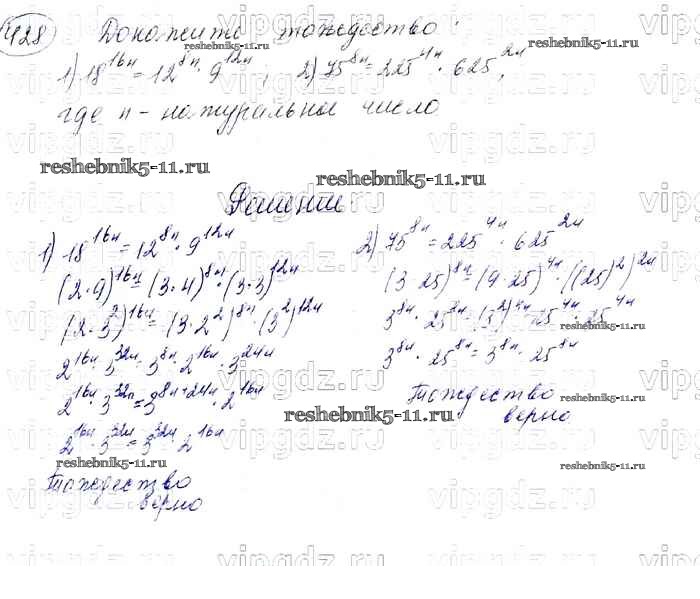 428 Докажите тождество:
1) 18^16n = 12^8n · 9^12n, 2) 75^8n = 225^4n · 625^2n,
где n - натуральное число
reshebnik5-11.ru
reshebnik5-11.ru
Решение
1) 18^16n = 12^8n · 9^12n
(2·9)^16n = (3·4)^8n · (3·3)^12n
(2·3^2)^16n = (3·2^2)^8n · (3^2)^12n
2^16n · 3^32n = 3^8n · 2^16n · 3^24n
2^16n · 3^32n = 3^8n+24n · 2^16n
2^16n · 3^32n = 3^32n · 2^16n
Тождество
верно
2) 75^8n = 225^4n · 625^2n
(3·25)^8n = (9·25)^4n · ((25)^2)^2n
3^8n · 25^8n = (3^2)^4n · 25^4n · 25^4n
3^8n · 25^8n = 3^8n · 25^8n
Тождество
верно
reshebnik5-11.ru
reshebnik5-11.ru
reshebnik5-11.ru
reshebnik5-11.ru
reshebnik5-11.ru
reshebnik5-11.ru
vipgdz.ru